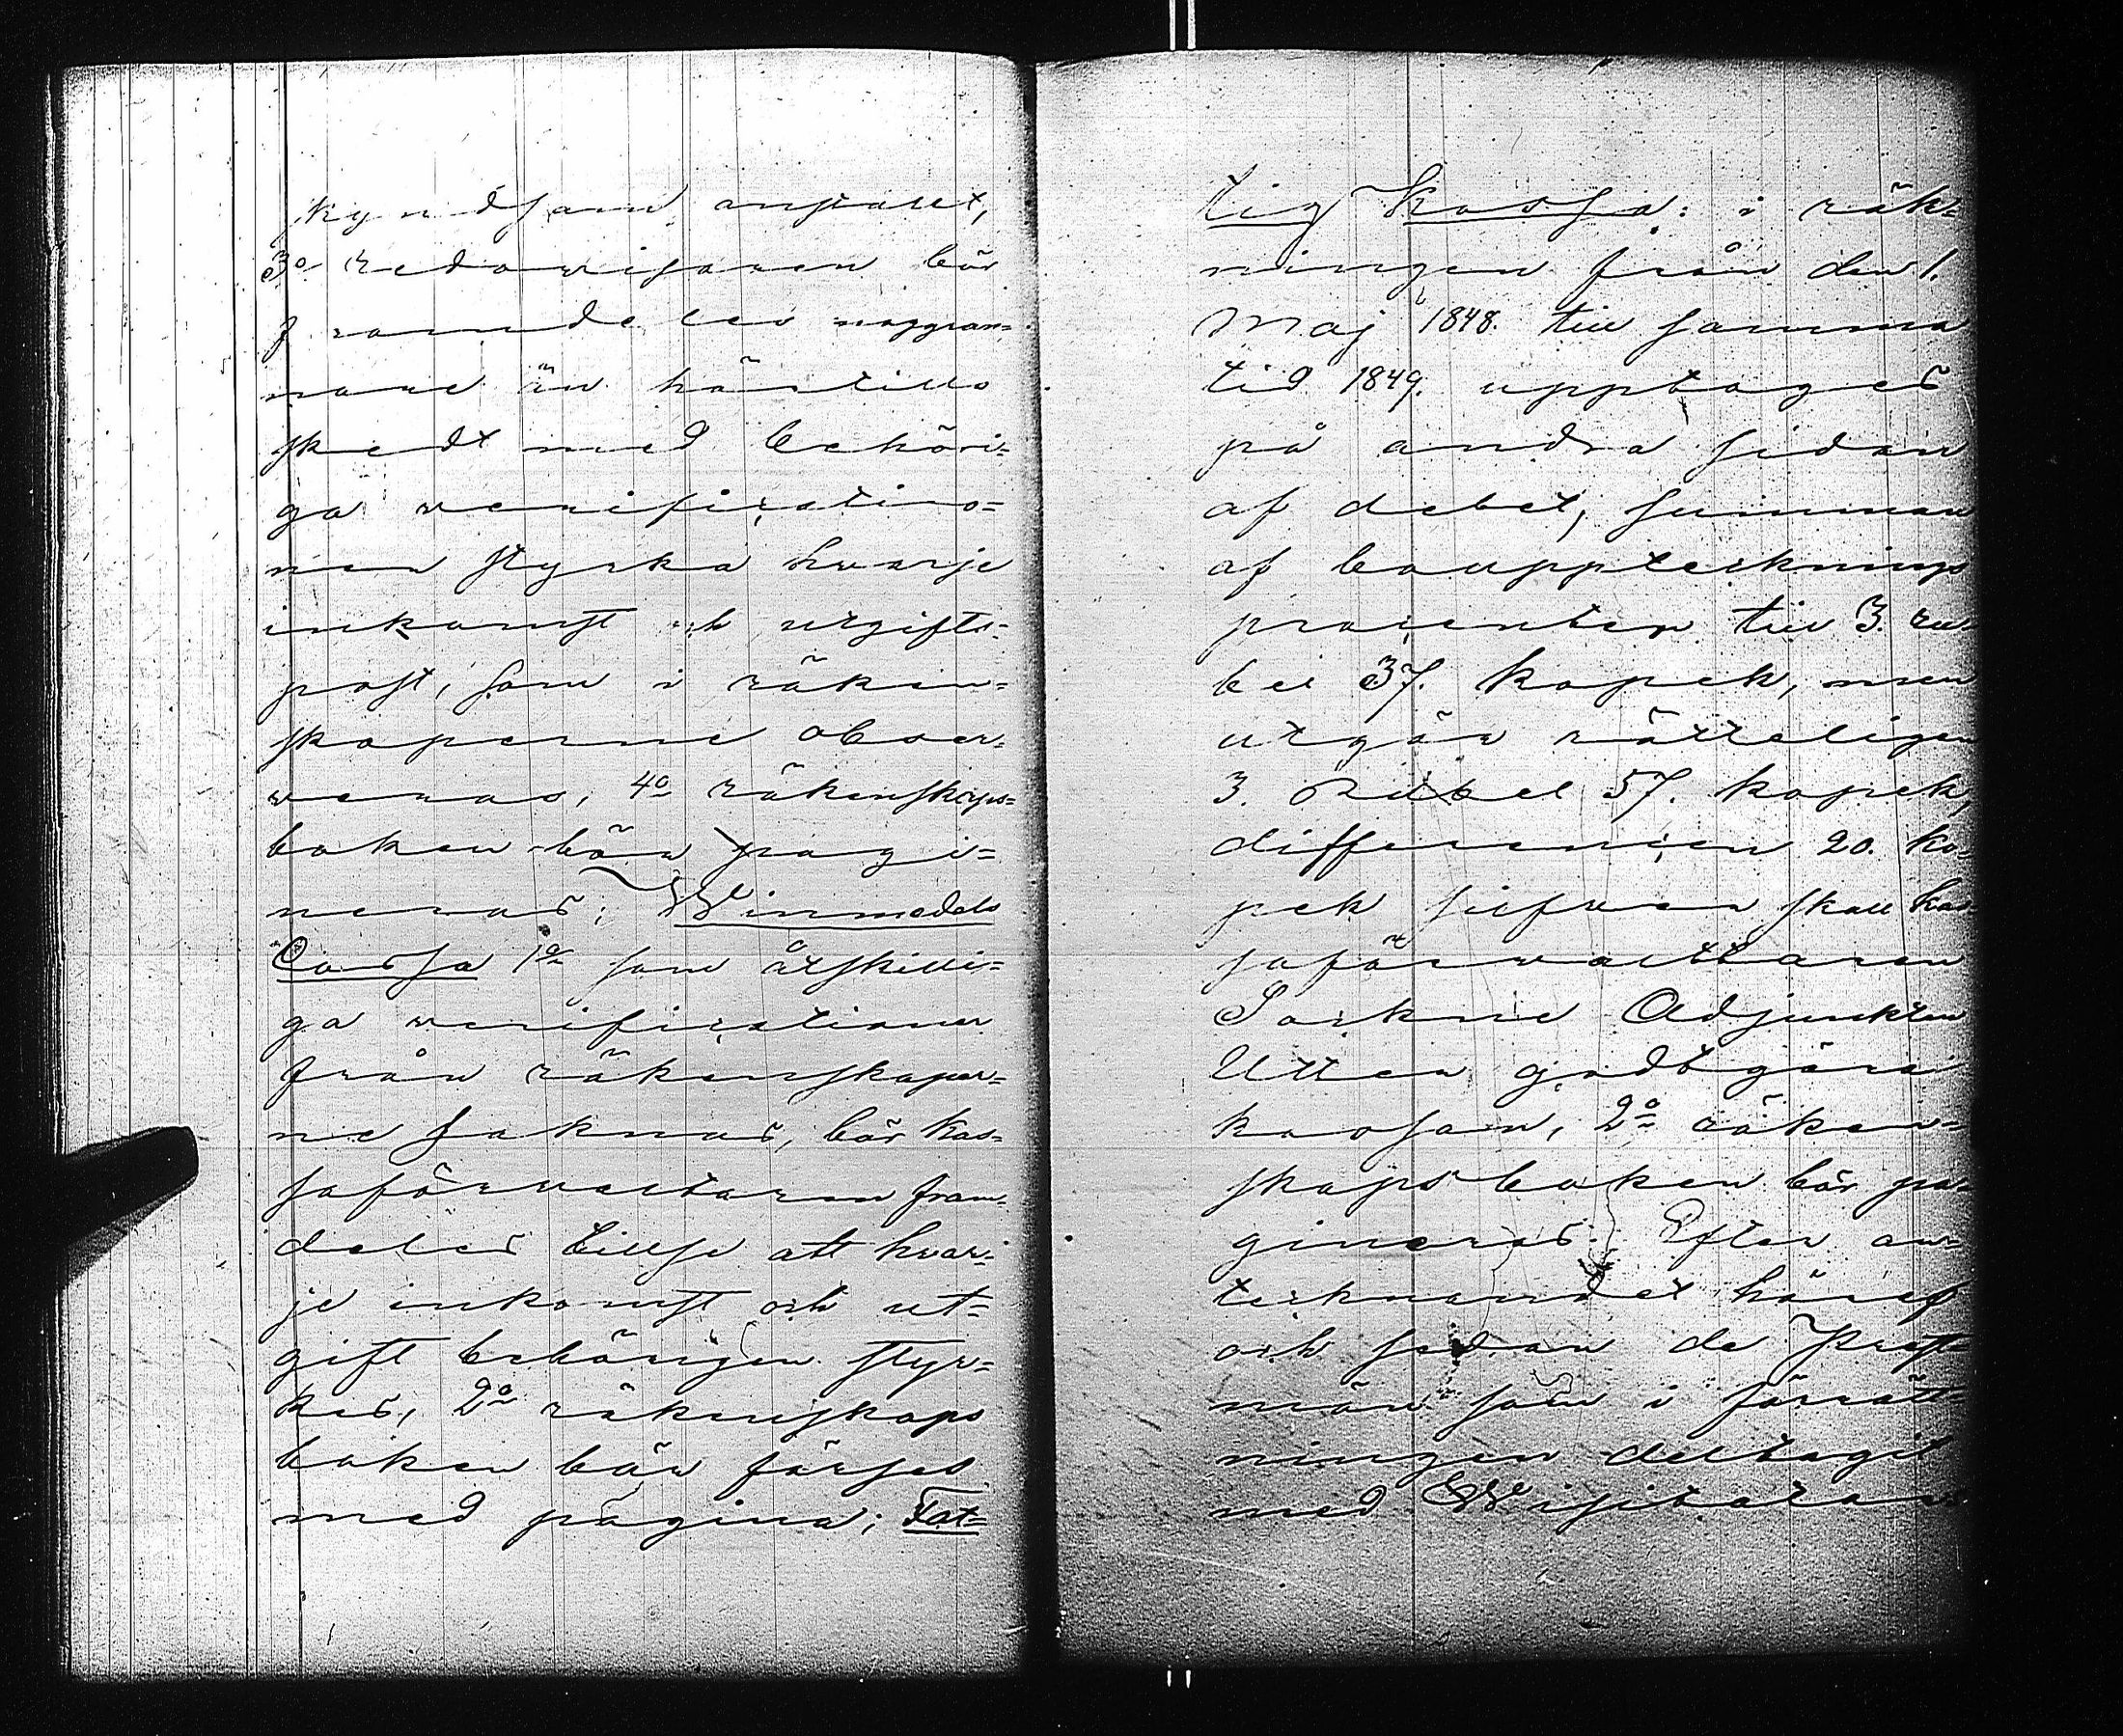 skyndsamt anstalt,
3o Redovisaren bör
framdeles noggran=
nare än härtills
skedt med behöri=
ga verificatio=
ner styrka hvarje
inkomst och utgifts=
post, som i räken=
skaperne obser=
veras, 4o räkenskaps=
boken bör pagi=
neras; Winmedels
Cassa 1o som åtskilli=
ga verificationer
från räkenskaper=
ne saknas, bör kas=
saförvaltaren fram=
deles tillse att hvar=
je inkomst och ut=
gift behörigen styr=
kes, 2o räkenskaps
boken bör förses
med pagina; Fat=
tig Kassa: i räk=
ningen från den 1.
Maj 1848. till samma
tid 1849. upptages
på andra sidan
af debet, summan
af bouppteknings
procenten till 3. ru=
bel 37. kopek, men
utgör rätteligen
3. Rubel 57. kopek,
differencen 20. ko=
pek silfver skall kas=
saförvaltaren
Sockne Adjunkten
Utter godtgöra
kassan, 2o räken=
skapsboken bör pa=
gineras. Efter an=
tecknandet häraf
och sedan de Prest=
män som i förrätt=
ningen deltagit
med Wisitatorn